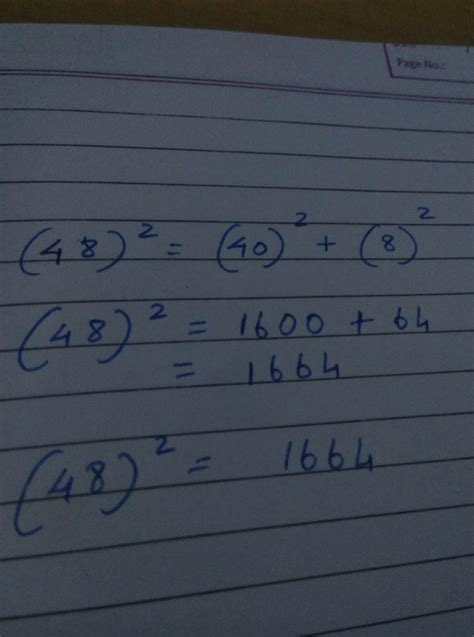 Page No.:
(48)² = (40)² + (8)²
(48)² = 1600 + 64
= 1664
(48)² = 1664